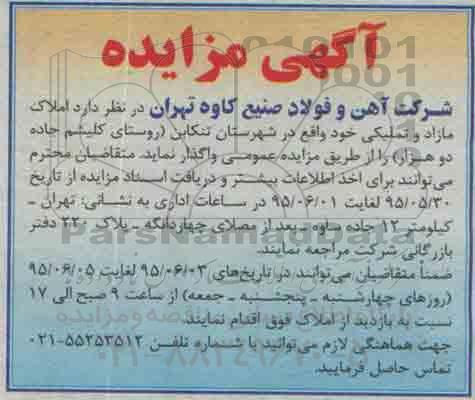 آگهی مزایده
شرکت آهن و فولاد صنیع کاوه تهران در نظر دارد املاک
مازاد و تملیکی خود واقع در شهرستان تنکابن (روستای کلیشم جاده
دو هزار) را از طریق مزایده عمومی واگذار نماید. متقاضیان محترم
می‌توانند برای اخذ اطلاعات بیشتر و دریافت اسناد مزایده از تاریخ
۹۵/۰۵/۳۰ لغایت ۹۵/۰۶/۰۱ در ساعات اداری به نشانی: تهران ـ
کیلومتر ۱۲ جاده ساوه ـ بعد از مصلای چهاردانگه ـ پلاک ۲۲۰ دفتر
بازرگانی شرکت مراجعه نمایند.
ضمناً متقاضیان می‌توانند در تاریخ‌های ۹۵/۰۶/۰۳ لغایت ۹۵/۰۶/۰۵
(روزهای چهارشنبه ـ پنجشنبه ـ جمعه) از ساعت ۹ صبح الی ۱۷
نسبت به بازدید از املاک فوق اقدام نمایند.
جهت هماهنگی لازم می‌توانید با شماره تلفن ۵۵۲۵۳۵۱۲-۰۲۱
تماس حاصل فرمایید.
ParsNamadData